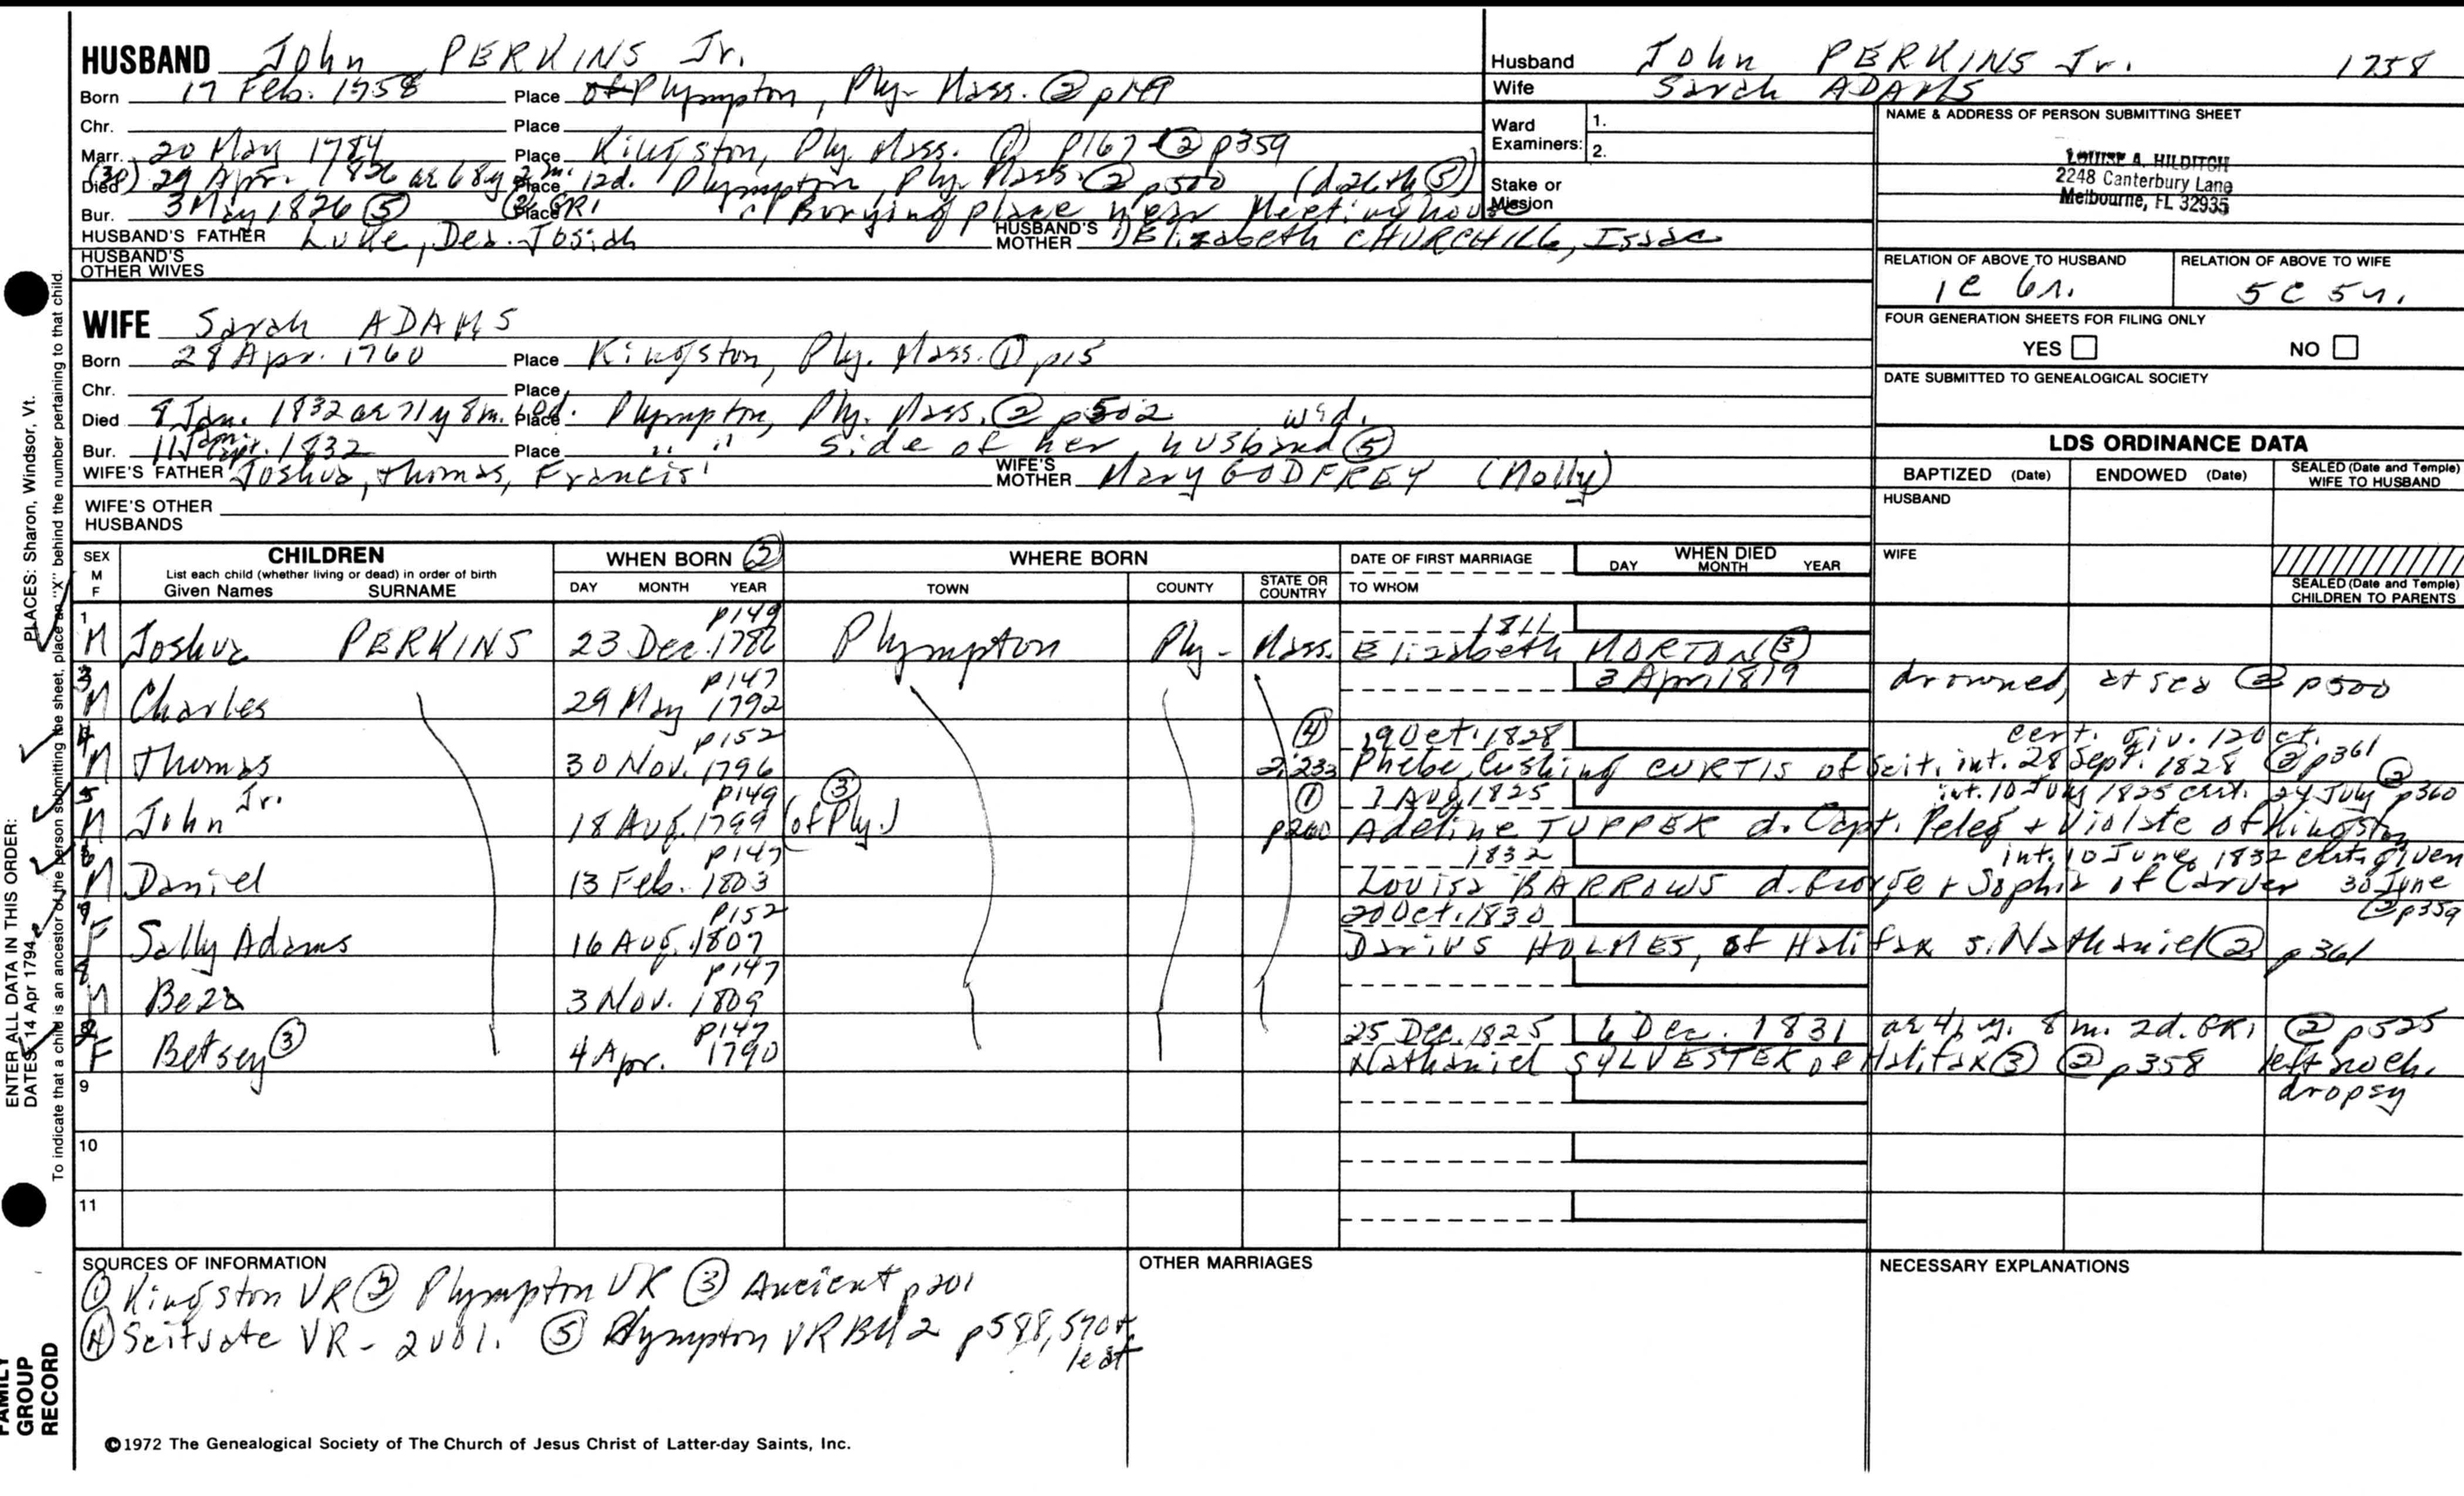 HUSBAND John PERKINS Jr.
Born 17 Feb. 1758 Place of Plympton, Ply- Mass. ② p149
Chr. Place
Marr. 20 May 1784 Place Kingston, Ply. Mass. ① p167 ② p359
Died (30) 29 Apr. 1826 ae 68y 2m. 12d. Place Plympton, Ply- Mass. ② p500 (d. 26th ⑤)
Bur. 3 May 1826 ⑤ Place GR1 " Burying place near Meeting house
HUSBAND'S FATHER Luke, Dea. Josiah HUSBAND'S MOTHER Elizabeth CHURCHILL, Isaac
HUSBAND'S OTHER WIVES
WIFE Sarah ADAMS
Born 28 Apr. 1760 Place Kingston, Ply. Mass. ① p15
Chr. Place
Died 8 Jan. 1832 ae 71y 8m. 10d. Place Plympton, Ply. Mass. ② p502 wid.
Bur. 11 Jan. 1832 Place " " side of her husband ⑤
WIFE'S FATHER Joshua, Thomas, Francis' WIFE'S MOTHER Mary GODFREY (Molly)
WIFE'S OTHER HUSBANDS
Husband John PERKINS Jr. 1758
Wife Sarah ADAMS
Ward Examiners: 1.
2.
Stake or Mission
NAME & ADDRESS OF PERSON SUBMITTING SHEET
LOUISE A. HILDITCH
2248 Canterbury Lane
Melbourne, FL 32935
RELATION OF ABOVE TO HUSBAND RELATION OF ABOVE TO WIFE
1c 6r. 5c 5r.
FOUR GENERATION SHEETS FOR FILING ONLY
YES NO
DATE SUBMITTED TO GENEALOGICAL SOCIETY
LDS ORDINANCE DATA
BAPTIZED (Date) ENDOWED (Date) SEALED (Date and Temple) WIFE TO HUSBAND
HUSBAND
WIFE
SEALED (Date and Temple) CHILDREN TO PARENTS
SEX M F
CHILDREN
List each child (whether living or dead) in order of birth
Given Names SURNAME
WHEN BORN ②
DAY MONTH YEAR
WHERE BORN
TOWN COUNTY STATE OR COUNTRY
DATE OF FIRST MARRIAGE
TO WHOM
WHEN DIED
DAY MONTH YEAR
1 p149 1811
M Joshua PERKINS 23 Dec. 1786 Plympton Ply- Mass. Elizabeth MORTON ③
3 p147 3 Apr. 1819 drowned, at sea ② p500
M Charles 29 May 1792
4 p152 ④ 19 Oct. 1828 cert. giv. 12 Oct.
M Thomas 30 Nov. 1796 2;233 Phebe Cushing CURTIS of Scit. int. 28 Sept. 1828 ② p361
5 Jr. p149 ③ ① 7 Aug. 1825 int. 10 July 1825 cert. 24 July ② p360
M John 18 Aug. 1799 (of Ply.) p260 Adeline TUPPER d. Capt. Peleg + Violate of Kingston
6 p147 1832 int. 10 June 1832 cert. given
M Daniel 13 Feb. 1803 Louisa BARROWS d. George + Sophia of Carver 30 June ② p359
7 p152 20 Oct. 1830
F Sally Adams 16 Aug. 1807 Darius HOLMES, of Halifax s. Nathaniel ② p361
8 p147
M Beza 3 Nov. 1809
2 p147 25 Dec. 1825 6 Dec. 1831 ae 41 y. 8 m. 2d. GR1 ② p525
F Betsey ③ 4 Apr. 1790 Nathaniel SYLVESTER of Halifax ③ ② p358 left no ch. dropsy
9
10
11
SOURCES OF INFORMATION
① Kingston VR ② Plympton VR ③ Ancient p201
④ Scituate VR - 2 vol. ⑤ Plympton VR BK 2 p588, 570 +
OTHER MARRIAGES
NECESSARY EXPLANATIONS
©1972 The Genealogical Society of The Church of Jesus Christ of Latter-day Saints, Inc.
ENTER ALL DATA IN THIS ORDER:
DATES: 14 Apr 1794
PLACES: Sharon, Windsor, Vt.
To indicate that a child is an ancestor of the person submitting the sheet, place an "X" behind the number pertaining to that child.
FAMILY GROUP RECORD